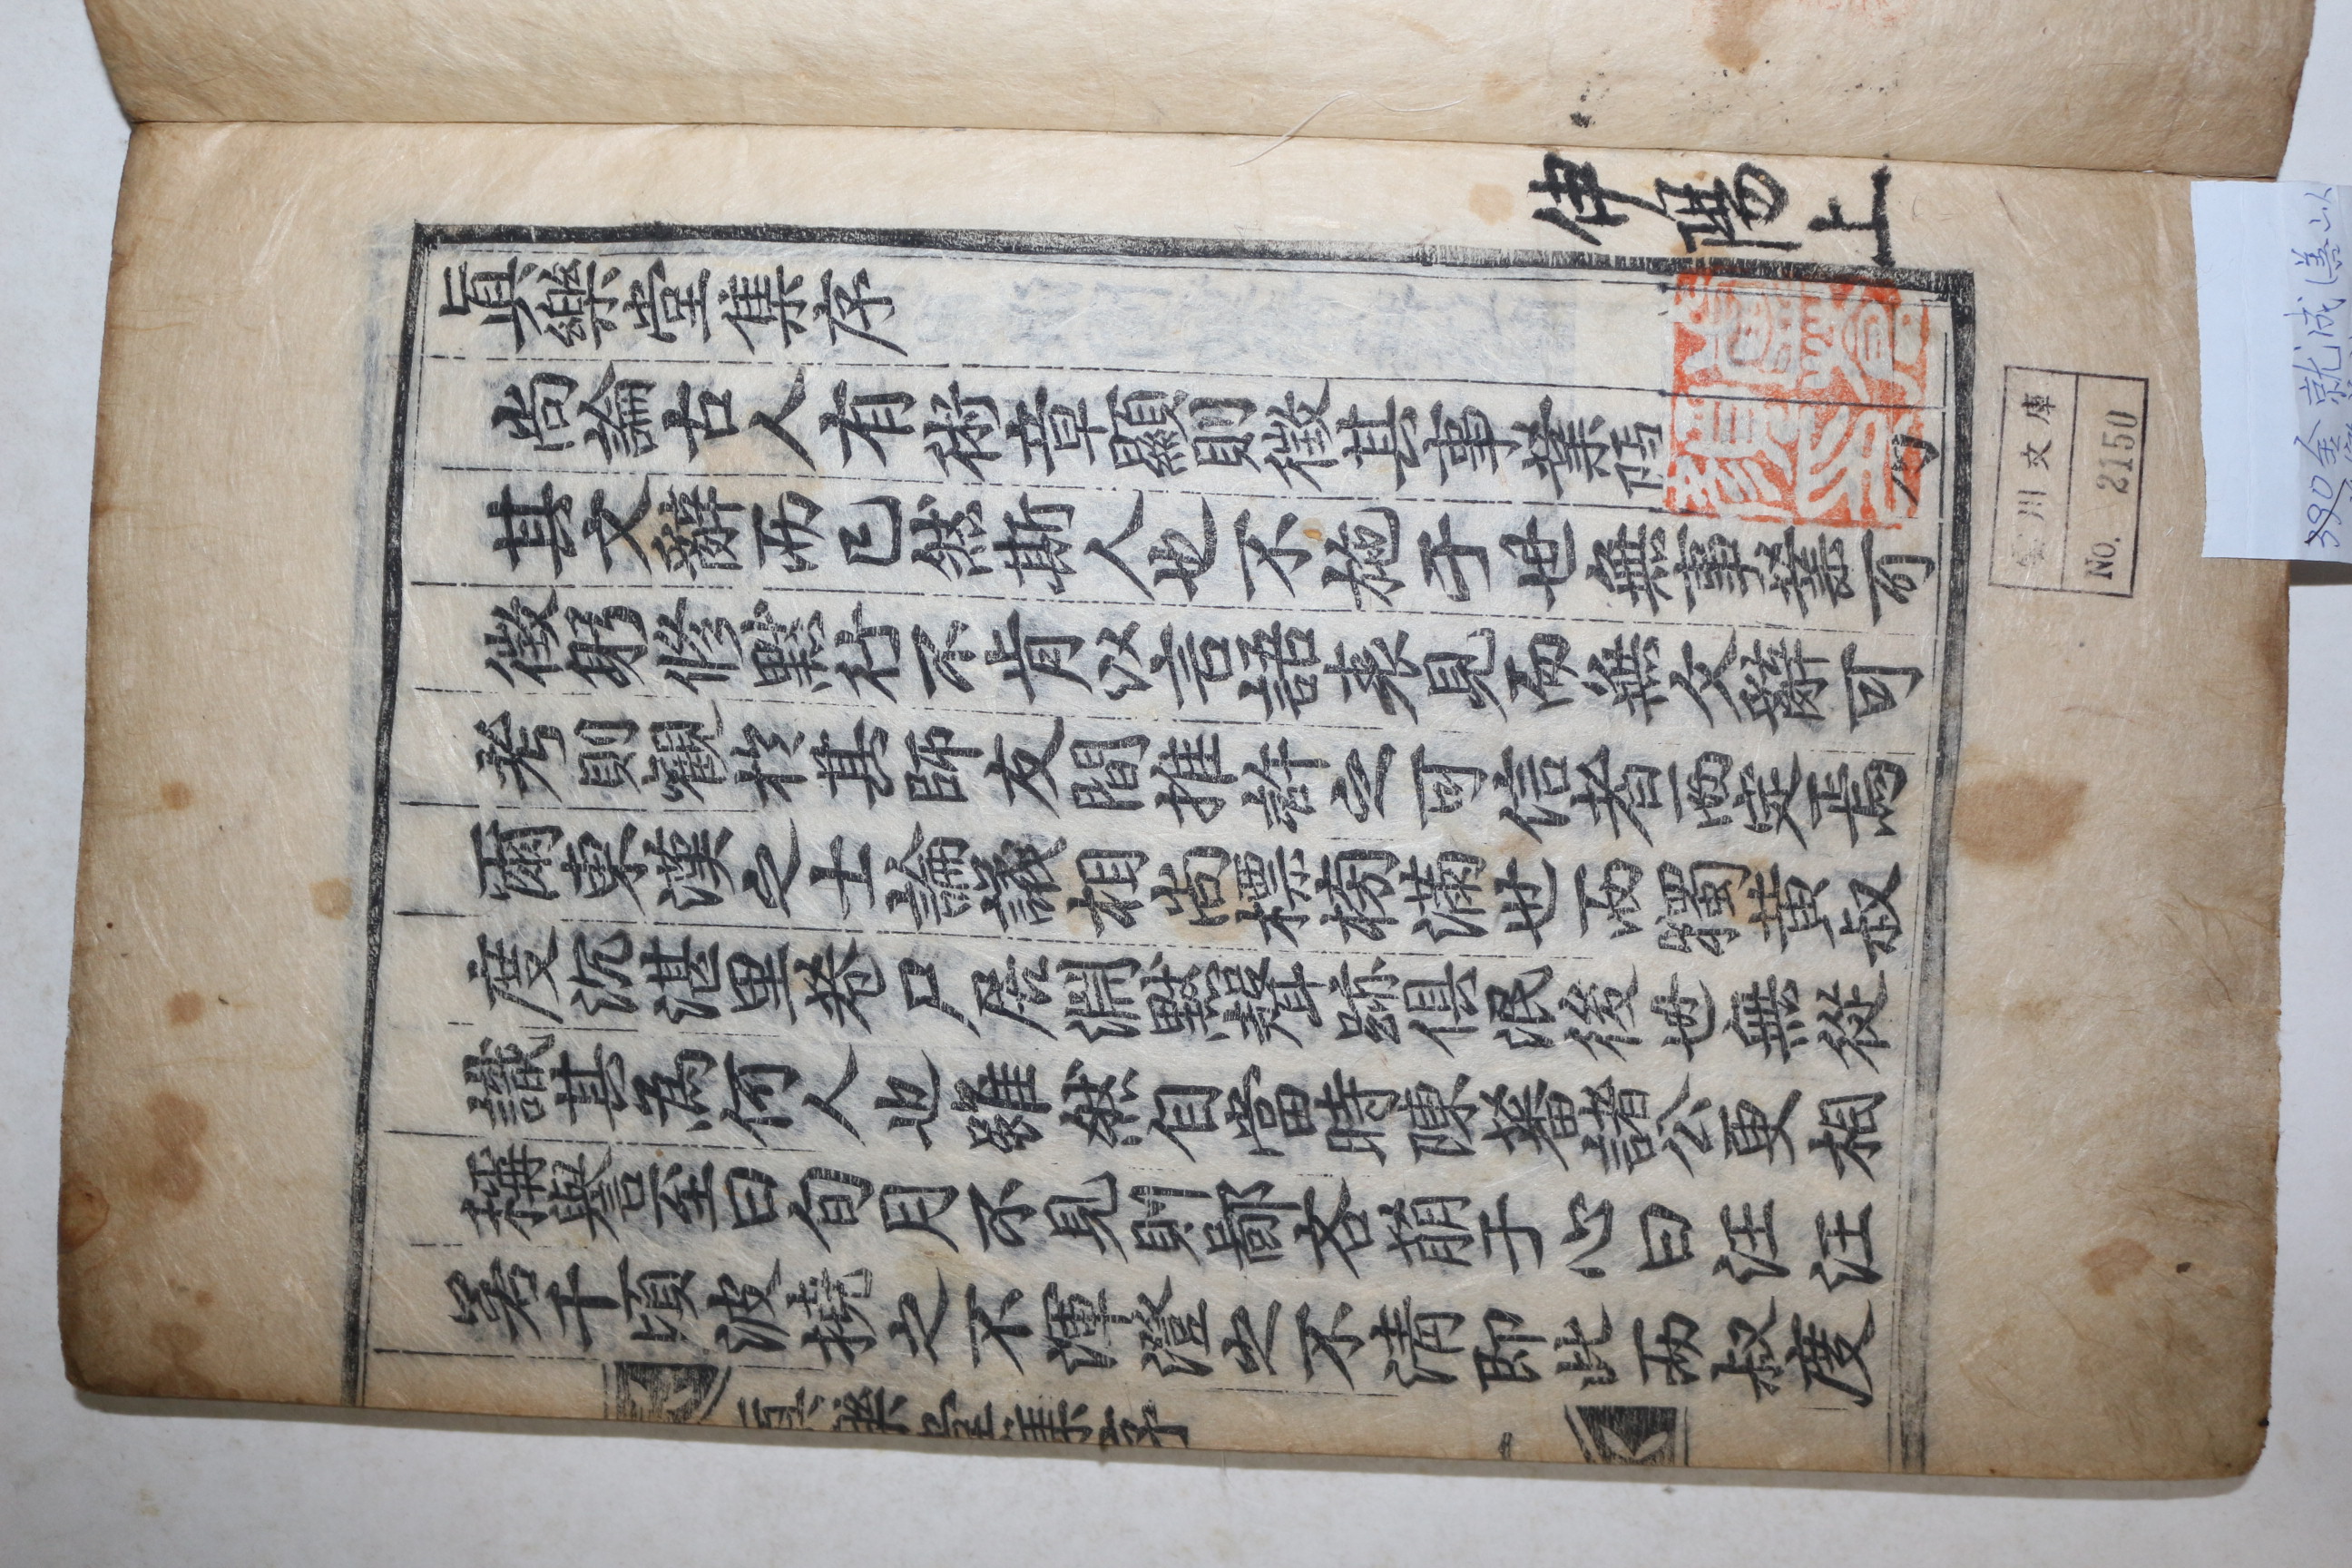 眞樂堂集序
尚論古人有術章顯則徵其事業
其文辭而已然斯人也不施于世無事業可
徵躬修默行不肯以言語表見而無文辭可
考則觀於其師友間推許之可信者而定焉
爾東漢之士論議相尚標榜滿世而獨黃叔
度沉湛里巷尸居淵默聲跡俱泯後世無從
識其為何人也雖然自當時陳蕃諸公更相
稱譽至曰旬月不見則鄙吝萠于心曰汪汪
若千頃波撓之不渾澄之不淸即此而叔度
樂堂集序
伊陽上
川文庫
No. 2150
390 金就成(善山人